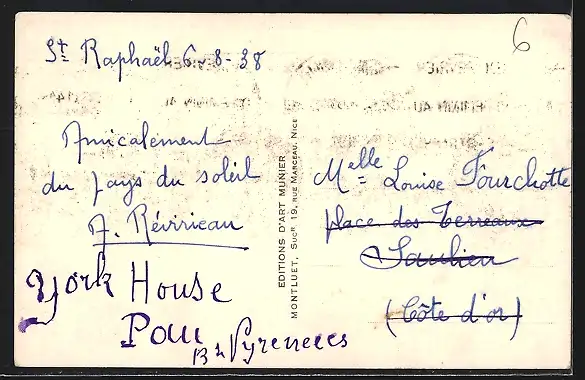 6
St Raphaël 6-8-38
Amicalement
du pays du soleil
A. Révirieau
York House
Pau
Bs Pyrenees
EDITIONS D'ART MUNIER
MONTLUET, Sucr 19, RUE MARCEAU, NICE
Melle Louise Fourchotte
place des Terreaux
Saulieu
(Côte d'or)